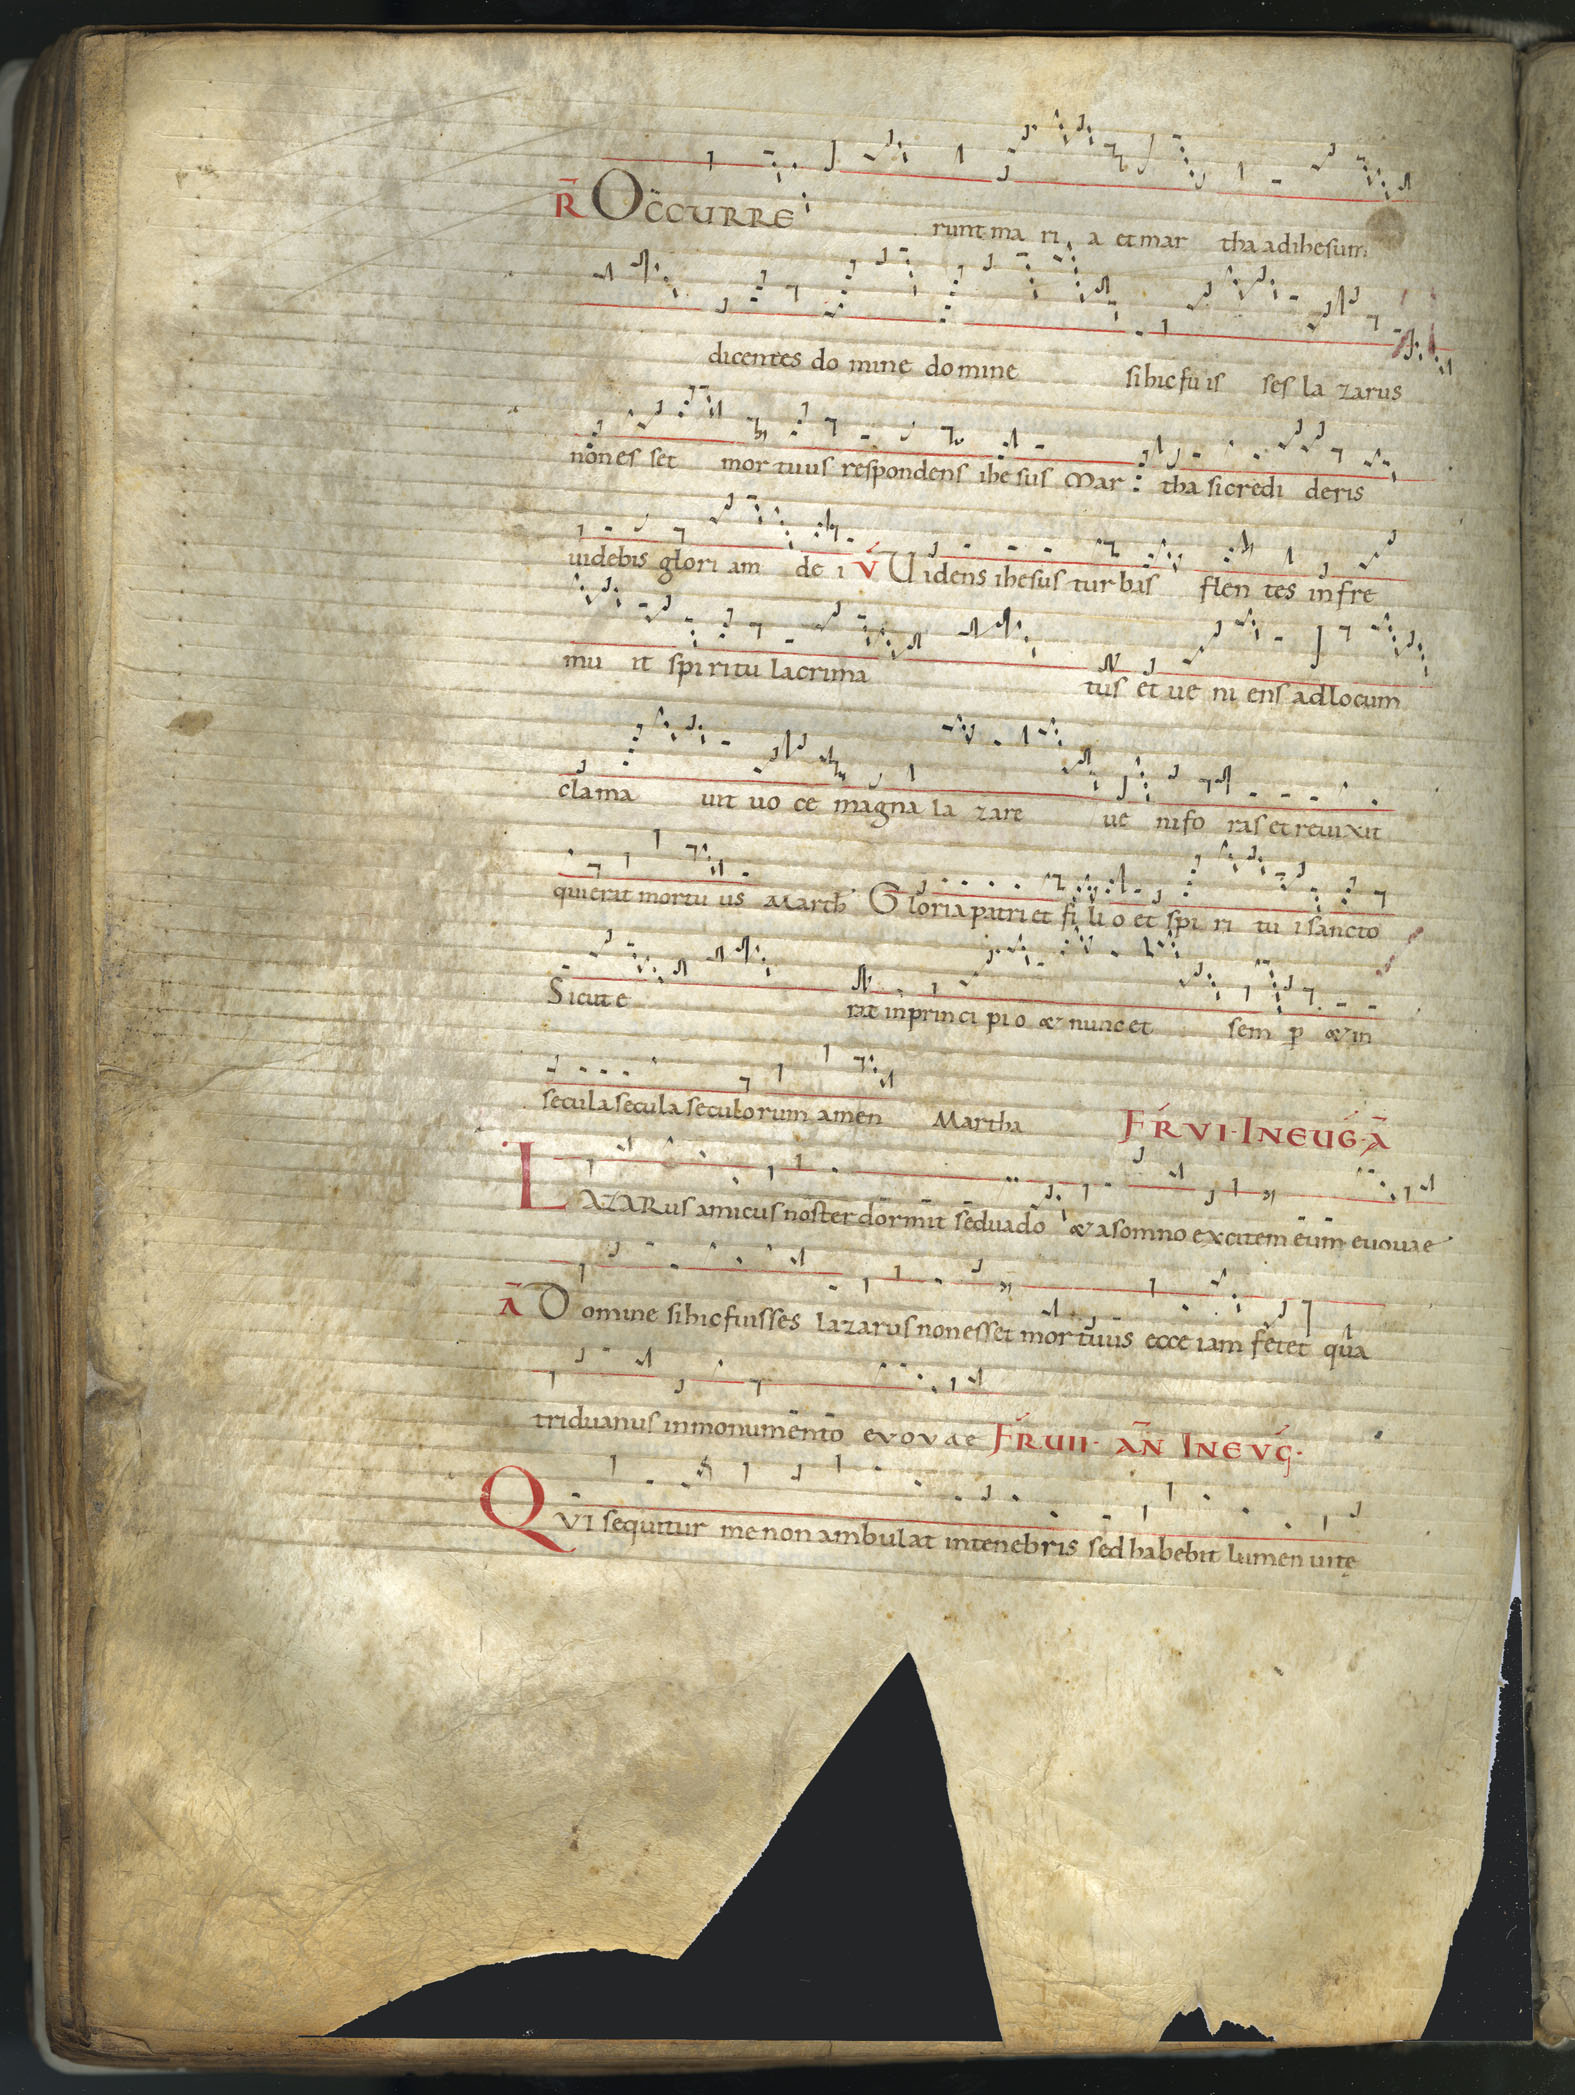 R̄ OCCURRE runt ma ri a et mar tha ad ihesum
dicentes do mine domine si hic fu is ses la zarus
non es set mor tuus respondens ihe sus Mar tha si credi deris
uidebis glori am de i V́ Uidens ihesus turbas flen tes infre
mu it spi ritu lacrima tus et ue ni ens ad locum
clama uit uo ce magna la zare ue ni fo ras et reuixit
qui erat mortu us Marth Gloria patri et fi li o et spi ri tu i sancto
Sicut e rat in prin ci pi o & nunc et sem p & in
secula secula seculorum amen Martha FR̄ VI · IN EUG · Ā
LAZARus amicus noster dormit sed uado & a somno excitem eum euouae
Ā Domine si hic fuisses lazarus non esset mortuus ecce iam fetet qua
triduanus in monumento evovae FR̄ UII · AN̄ IN EVG ·
QVI sequitur me non ambulat in tenebris sed habebit lumen uitę